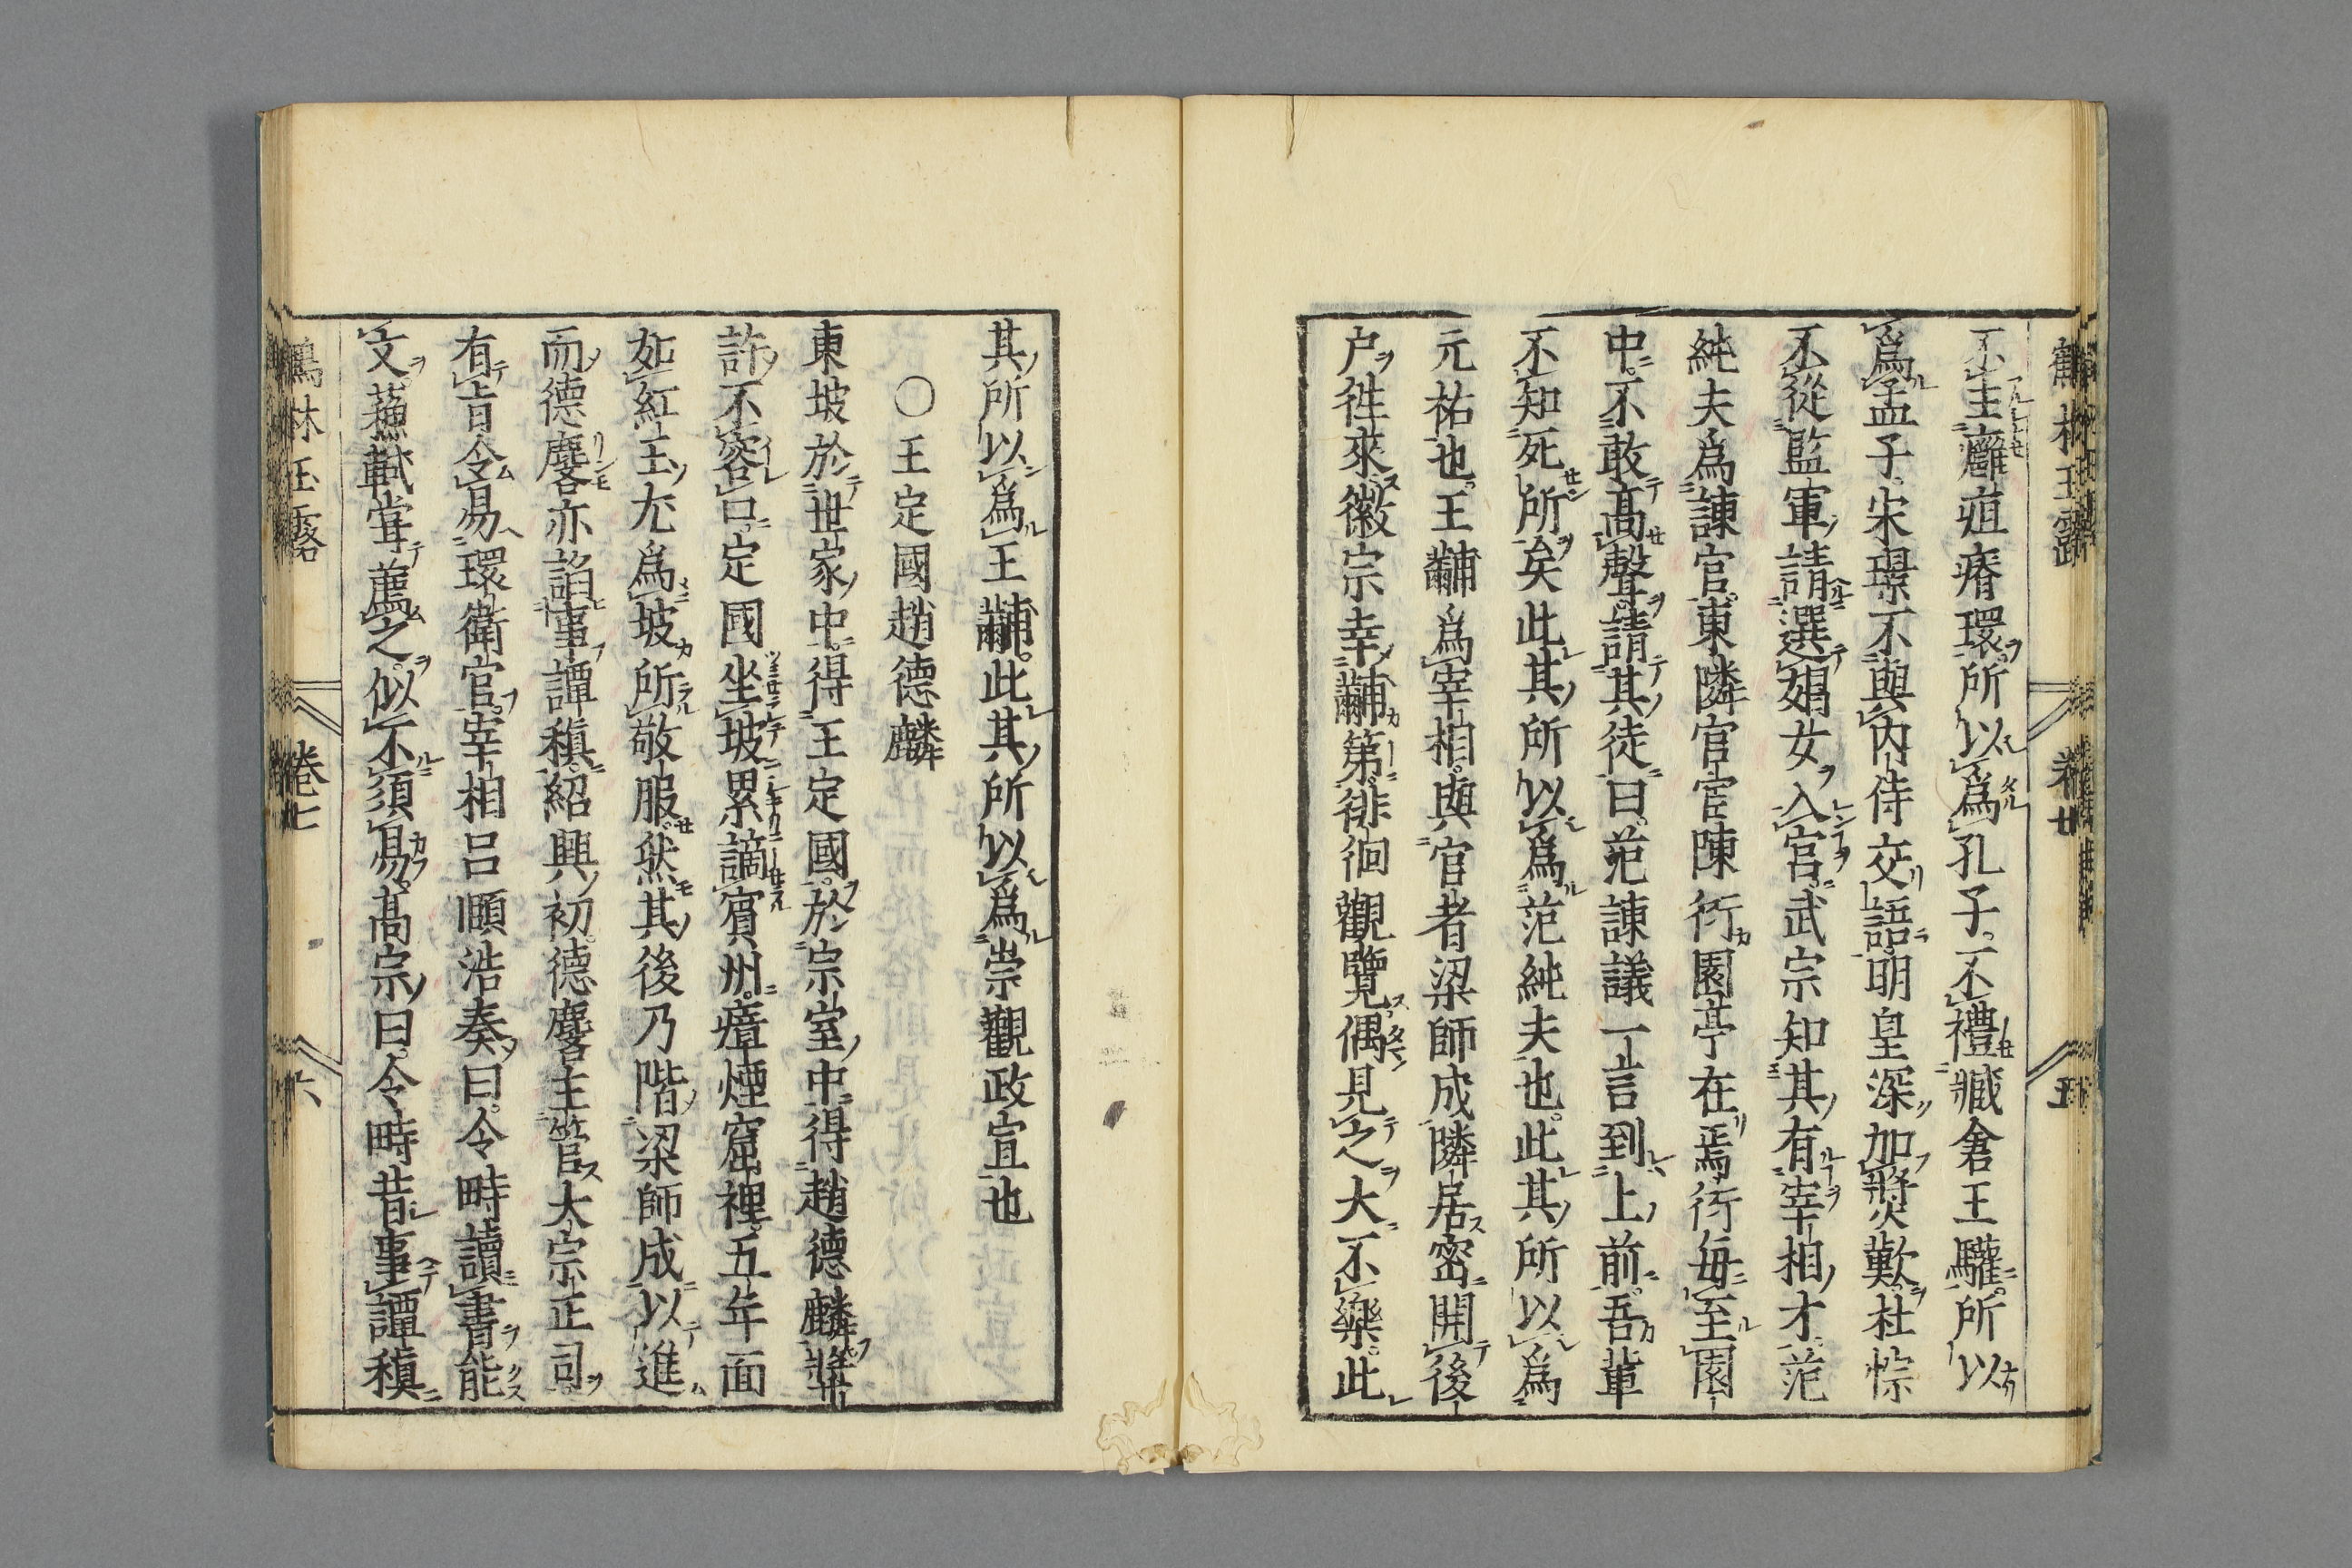 不主癰疽瘠環所以為孔子不禮臧倉王驩所以
為孟子宋璟不與內侍交語明皇深加奬歎杜悰
不從監軍請選娼女入宮武宗知其有宰相才范
純夫為諫官東隣官宦陳衍園亭在焉衍每至園
中不敢高聲請其徒曰范諫議一言到上前吾輩
不知死所矣此其所以為范純夫也此其所以為
元祐也王黼為宰相與官者梁師成隣居密開後
户徃來徽宗幸黼第徘徊觀覽偶見之大不樂此
其所以為王黼此其所以為崇觀政宣也
〇王定國趙德麟
東坡於世家中得王定國於宗室中得趙德麟奬
許不容口定國坐坡累謫賓州瘴煙窟裡五年面
如紅玉尤為坡所敬服然其後乃階梁師成以進
而德麐亦諂事譚稹紹興初德麐主管大宗正司
有旨令易環衛官宰相呂頤浩奏曰令畤讀書能
文蘓軾甞薦之似不須易高宗曰令畤昔事譚稹
鶴林玉露 卷七 六